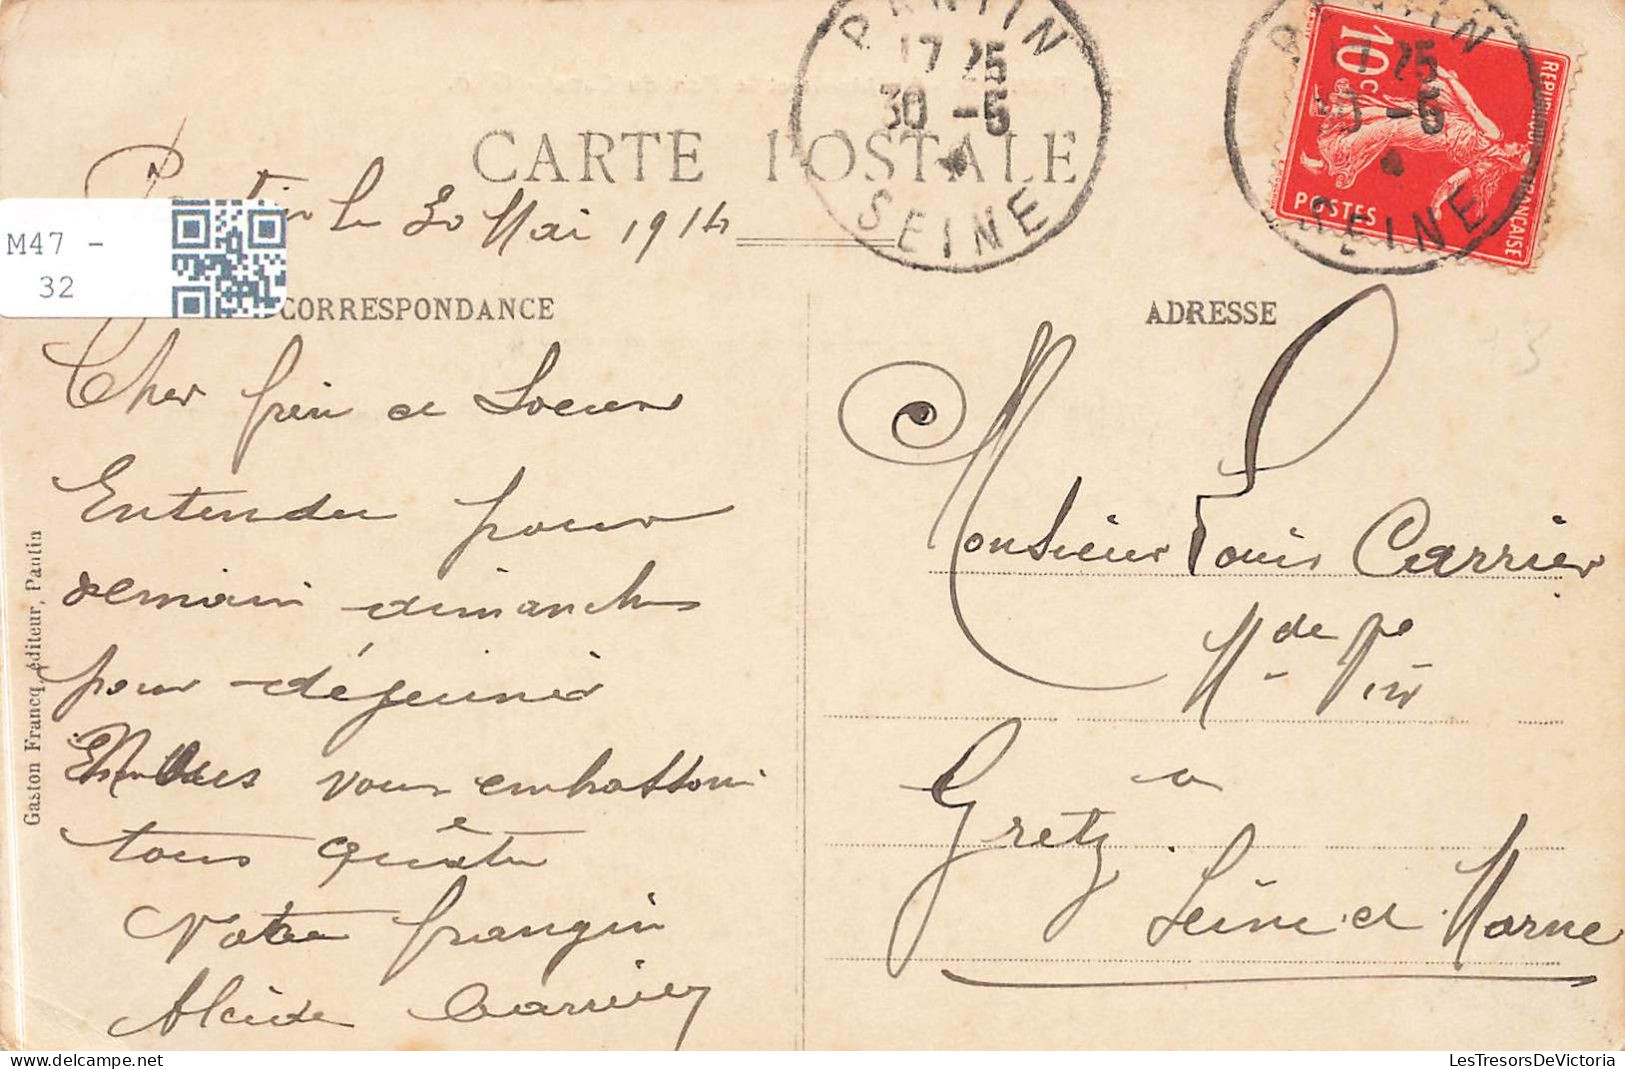 PANTIN
17 25
30 -5
SEINE
PANTIN
17 25
30 -5
SEINE
10c
REPUBLIQUE FRANÇAISE
POSTES
CARTE POSTALE
Pantin le 30 Mai 1914
M47 -
32
CORRESPONDANCE
ADRESSE
Cher frère et Soeur
Entendu pour
demain dimanche
pour déjeuner
Nous vous embrassons
tous quatre
Votre frangin
Alcide Carrier
Monsieur Louis Carrier
Md de
Vin
à
Gretz
Seine et Marne
Gaston Francq, éditeur, Pantin
LesTresorsDeVictoria.com